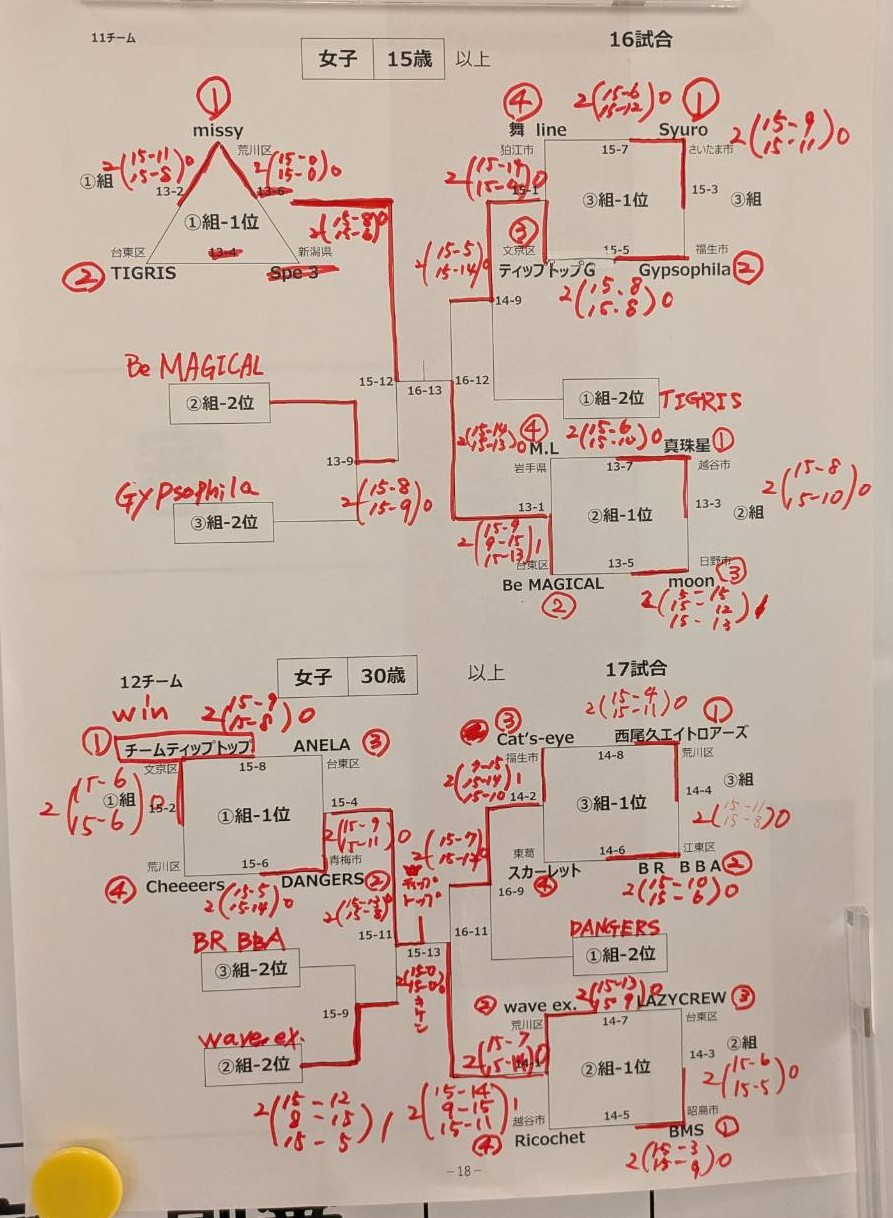 11チーム
女子 15歳 以上
16試合
①
missy
荒川区
①組
2(15-11 15-8)0
2(15-0 15-0)0
13-2
13-6
①組-1位
13-4
台東区
新潟県
② TIGRIS
Spe 3
2(15-8 15-6)0
④
2(15-6 15-12)0
①
舞 line
Syuro
狛江市
15-7
さいたま市
2(15-9 15-11)0
15-1
③組-1位
15-3
③組
③
文京区
15-5
福生市
ティップトップG
Gypsophila ②
2(15-8 15-8)0
2(15-5 15-14)0
14-9
Be MAGICAL
②組-2位
15-12
16-13
16-12
①組-2位
TIGRIS
13-9
Gypsophila
③組-2位
2(15-8 15-9)0
2(15-14 15-13)0
④
M.L
真珠星 ①
岩手県
13-7
越谷市
2(15-8 15-10)0
13-1
②組-1位
13-3
②組
2(15-9 9-15 15-13)1
台東区
13-5
日野市
Be MAGICAL
moon ③
②
2(5-15 15-12 15-13)1
12チーム
女子 30歳 以上
17試合
win
2(15-9 15-8)0
① チームティップトップ
ANELA ③
文京区
15-8
台東区
2(15-6 15-6)0
①組
15-2
①組-1位
15-4
2(15-9 15-11)0
荒川区
15-6
青梅市
④ Cheeeers
DANGERS ②
2(15-5 15-14)0
2(15-4 15-11)0
③
①
Cat's-eye
西尾久エイトロアーズ
福生市
14-8
荒川区
2(9-15 15-14 15-10)1
14-2
③組-1位
14-4
③組
2(15-11 15-8)0
東葛
14-6
江東区
スカーレット
BR BBA ②
④
2(15-10 15-6)0
ティップトップ
15-11
15-13
16-11
16-9
BR BBA
③組-2位
DANGERS
①組-2位
15-9
2(15-0 15-0)0
キケン
wave ex.
②組-2位
2(15-12 8-15 15-5)1
2(15-14 9-15 15-11)1
② wave ex.
2(15-13 15-9)0
LAZYCREW ③
荒川区
14-7
台東区
2(15-7 15-14)0
14-1
②組-1位
14-3
②組
2(15-6 15-5)0
越谷市
14-5
昭島市
Ricochet
BMS ①
④
2(15-3 15-9)0
-18-